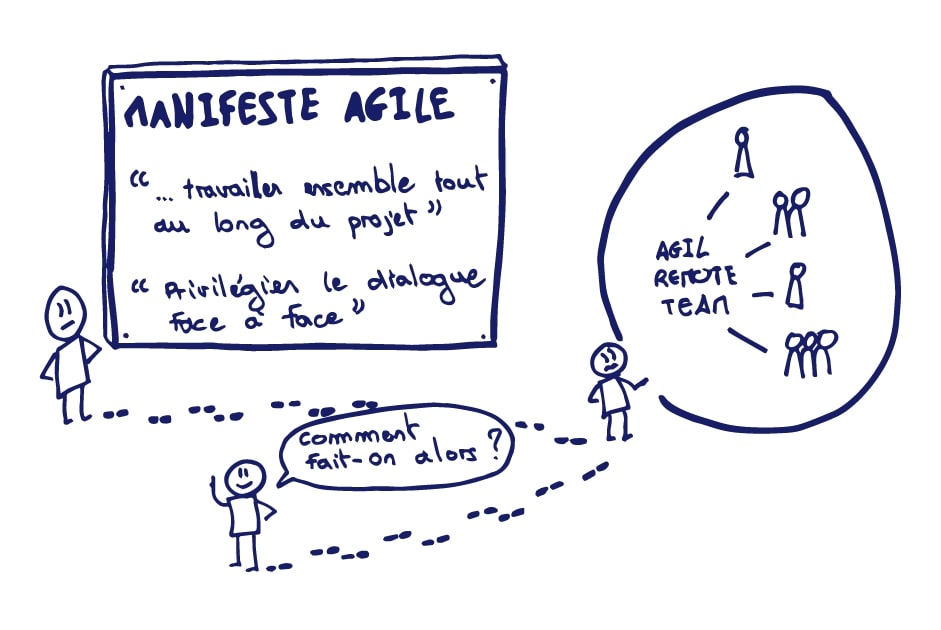 MANIFESTE AGILE
“... travailler ensemble tout
au long du projet”
“Privilégier le dialogue
face à face”
AGIL
REMOTE
TEAM
comment
fait-on alors ?